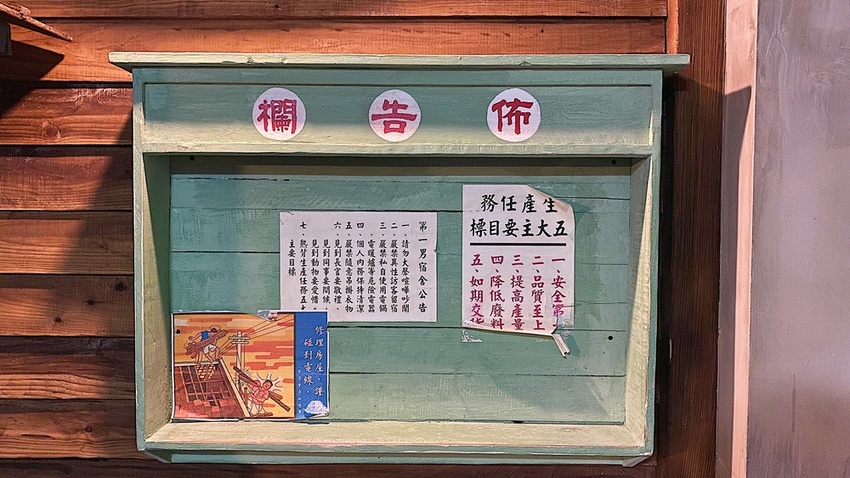 佈告欄
生產任務
五大主要目標
一、安全第
二、品質至上
三、提高產量
四、降低廢料
五、如期交貨
第一男宿舍公告
一、請勿大聲喧嘩吵鬧
二、嚴禁異性訪客留宿
三、嚴禁私自使用電鍋
、電暖爐等危險電器
四、個人內務保持清潔
五、嚴禁隨意吊掛衣物
六、見到長官要敬禮、
見到同事要問候、
見到動物要愛惜。
七、熟背生產任務五大
主要目標
修理房屋，謹
碰到電線。